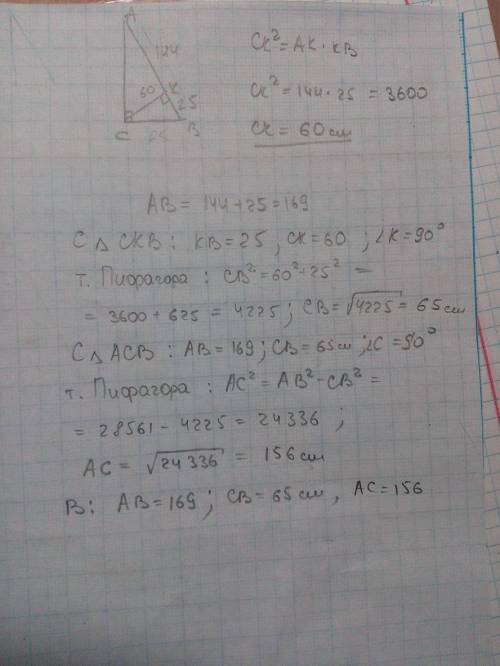 A
144
60
K
25
C
65
B
CK² = AK · KB
CK² = 144 · 25 = 3600
CK = 60 см
AB = 144 + 25 = 169
С △ CKB : KB = 25 ; CK = 60 ; ∠K = 90°
т. Пифагора : CB² = 60² + 25² =
= 3600 + 625 = 4225 ; CB = √4225 = 65 см
С △ ACB : AB = 169 ; CB = 65 см ; ∠C = 90°
т. Пифагора : AC² = AB² - CB² =
= 28561 - 4225 = 24336 ;
AC = √24336 = 156 см
В : AB = 169 ; CB = 65 см , AC = 156